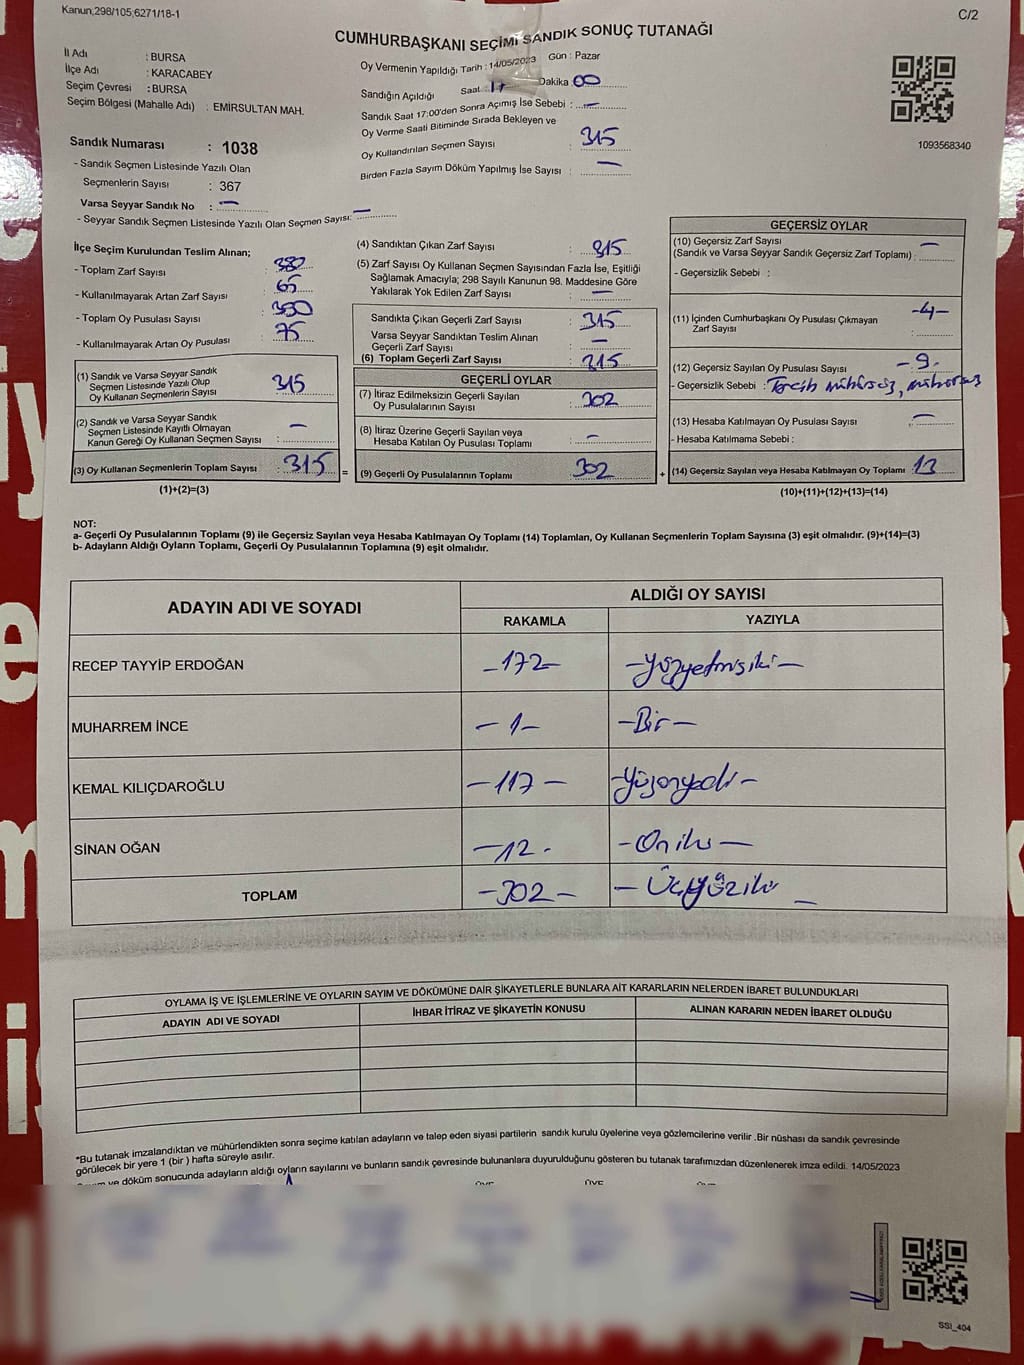 Kanun,298/105,6271/18-1
C/2
CUMHURBAŞKANI SEÇİMİ SANDIK SONUÇ TUTANAĞI
İl Adı : BURSA
İlçe Adı : KARACABEY
Seçim Çevresi : BURSA
Seçim Bölgesi (Mahalle Adı) : EMİRSULTAN MAH.
Oy Vermenin Yapıldığı Tarih : 14/05/2023 Gün : Pazar
Sandığın Açıldığı Saat : 17 Dakika 00
Sandık Saat 17:00'den Sonra Açmış İse Sebebi : —
Oy Verme Saati Bitiminde Sırada Bekleyen ve
Oy Kullandırılan Seçmen Sayısı : 315
Birden Fazla Sayım Döküm Yapılmış İse Sayısı : —
1093568340
Sandık Numarası : 1038
- Sandık Seçmen Listesinde Yazılı Olan
Seçmenlerin Sayısı : 367
Varsa Seyyar Sandık No : —
- Seyyar Sandık Seçmen Listesinde Yazılı Olan Seçmen Sayısı: —
İlçe Seçim Kurulundan Teslim Alınan;
- Toplam Zarf Sayısı : 380
- Kullanılmayarak Artan Zarf Sayısı : 65
- Toplam Oy Pusulası Sayısı : 390
- Kullanılmayarak Artan Oy Pusulası : 75
(1) Sandık ve Varsa Seyyar Sandık
Seçmen Listesinde Yazılı Olup
Oy Kullanan Seçmenlerin Sayısı : 315
(2) Sandık ve Varsa Seyyar Sandık
Seçmen Listesinde Kayıtlı Olmayan
Kanun Gereği Oy Kullanan Seçmen Sayısı : —
(3) Oy Kullanan Seçmenlerin Toplam Sayısı : 315 =
(1)+(2)=(3)
(4) Sandıktan Çıkan Zarf Sayısı : 315
(5) Zarf Sayısı Oy Kullanan Seçmen Sayısından Fazla İse, Eşitliği
Sağlamak Amacıyla; 298 Sayılı Kanunun 98. Maddesine Göre
Yakılarak Yok Edilen Zarf Sayısı : —
Sandıkta Çıkan Geçerli Zarf Sayısı : 315
Varsa Seyyar Sandıktan Teslim Alınan
Geçerli Zarf Sayısı : —
(6) Toplam Geçerli Zarf Sayısı : 315
GEÇERLİ OYLAR
(7) İtiraz Edilmeksizin Geçerli Sayılan
Oy Pusulalarının Sayısı : 302
(8) İtiraz Üzerine Geçerli Sayılan veya
Hesaba Katılan Oy Pusulası Toplamı : —
(9) Geçerli Oy Pusulalarının Toplamı : 302 +
GEÇERSİZ OYLAR
(10) Geçersiz Zarf Sayısı
(Sandık ve Varsa Seyyar Sandık Geçersiz Zarf Toplamı) : —
- Geçersizlik Sebebi :
(11) İçinden Cumhurbaşkanı Oy Pusulası Çıkmayan
Zarf Sayısı : -4-
(12) Geçersiz Sayılan Oy Pusulası Sayısı : - 9 -
- Geçersizlik Sebebi : Tercih mühürsüz,
(13) Hesaba Katılmayan Oy Pusulası Sayısı : —
- Hesaba Katılmama Sebebi :
(14) Geçersiz Sayılan veya Hesaba Katılmayan Oy Toplamı : 13
(10)+(11)+(12)+(13)=(14)
NOT:
a- Geçerli Oy Pusulalarının Toplamı (9) ile Geçersiz Sayılan veya Hesaba Katılmayan Oy Toplamı (14) Toplamları, Oy Kullanan Seçmenlerin Toplam Sayısına (3) eşit olmalıdır. (9)+(14)=(3)
b- Adayların Aldığı Oyların Toplamı, Geçerli Oy Pusulalarının Toplamına (9) eşit olmalıdır.
ADAYIN ADI VE SOYADI
ALDIĞI OY SAYISI
RAKAMLA YAZIYLA
RECEP TAYYİP ERDOĞAN -172- -Yüzyetmişiki-
MUHARREM İNCE - 1 - -Bir-
KEMAL KILIÇDAROĞLU -117- -Yüzonyedi-
SİNAN OĞAN -12- -Oniki-
TOPLAM -302- - Üçyüziki -
OYLAMA İŞ VE İŞLEMLERİNE VE OYLARIN SAYIM VE DÖKÜMÜNE DAİR ŞİKAYETLERLE BUNLARA AİT KARARLARIN NELERDEN İBARET BULUNDUKLARI
ADAYIN ADI VE SOYADI İHBAR İTİRAZ VE ŞİKAYETİN KONUSU ALINAN KARARIN NEDEN İBARET OLDUĞU
*Bu tutanak imzalandıktan ve mühürlendikten sonra seçime katılan adayların ve talep eden siyasi partilerin sandık kurulu üyelerine veya gözlemcilerine verilir .Bir nüshası da sandık çevresinde
görülecek bir yere 1 (bir ) hafta süreyle asılır.
ve döküm sonucunda adayların aldığı oyların sayılarını ve bunların sandık çevresinde bulunanlara duyurulduğunu gösteren bu tutanak tarafımızdan düzenlenerek imza edildi. 14/05/2023
ÜYE ÜYE
SSİ_404